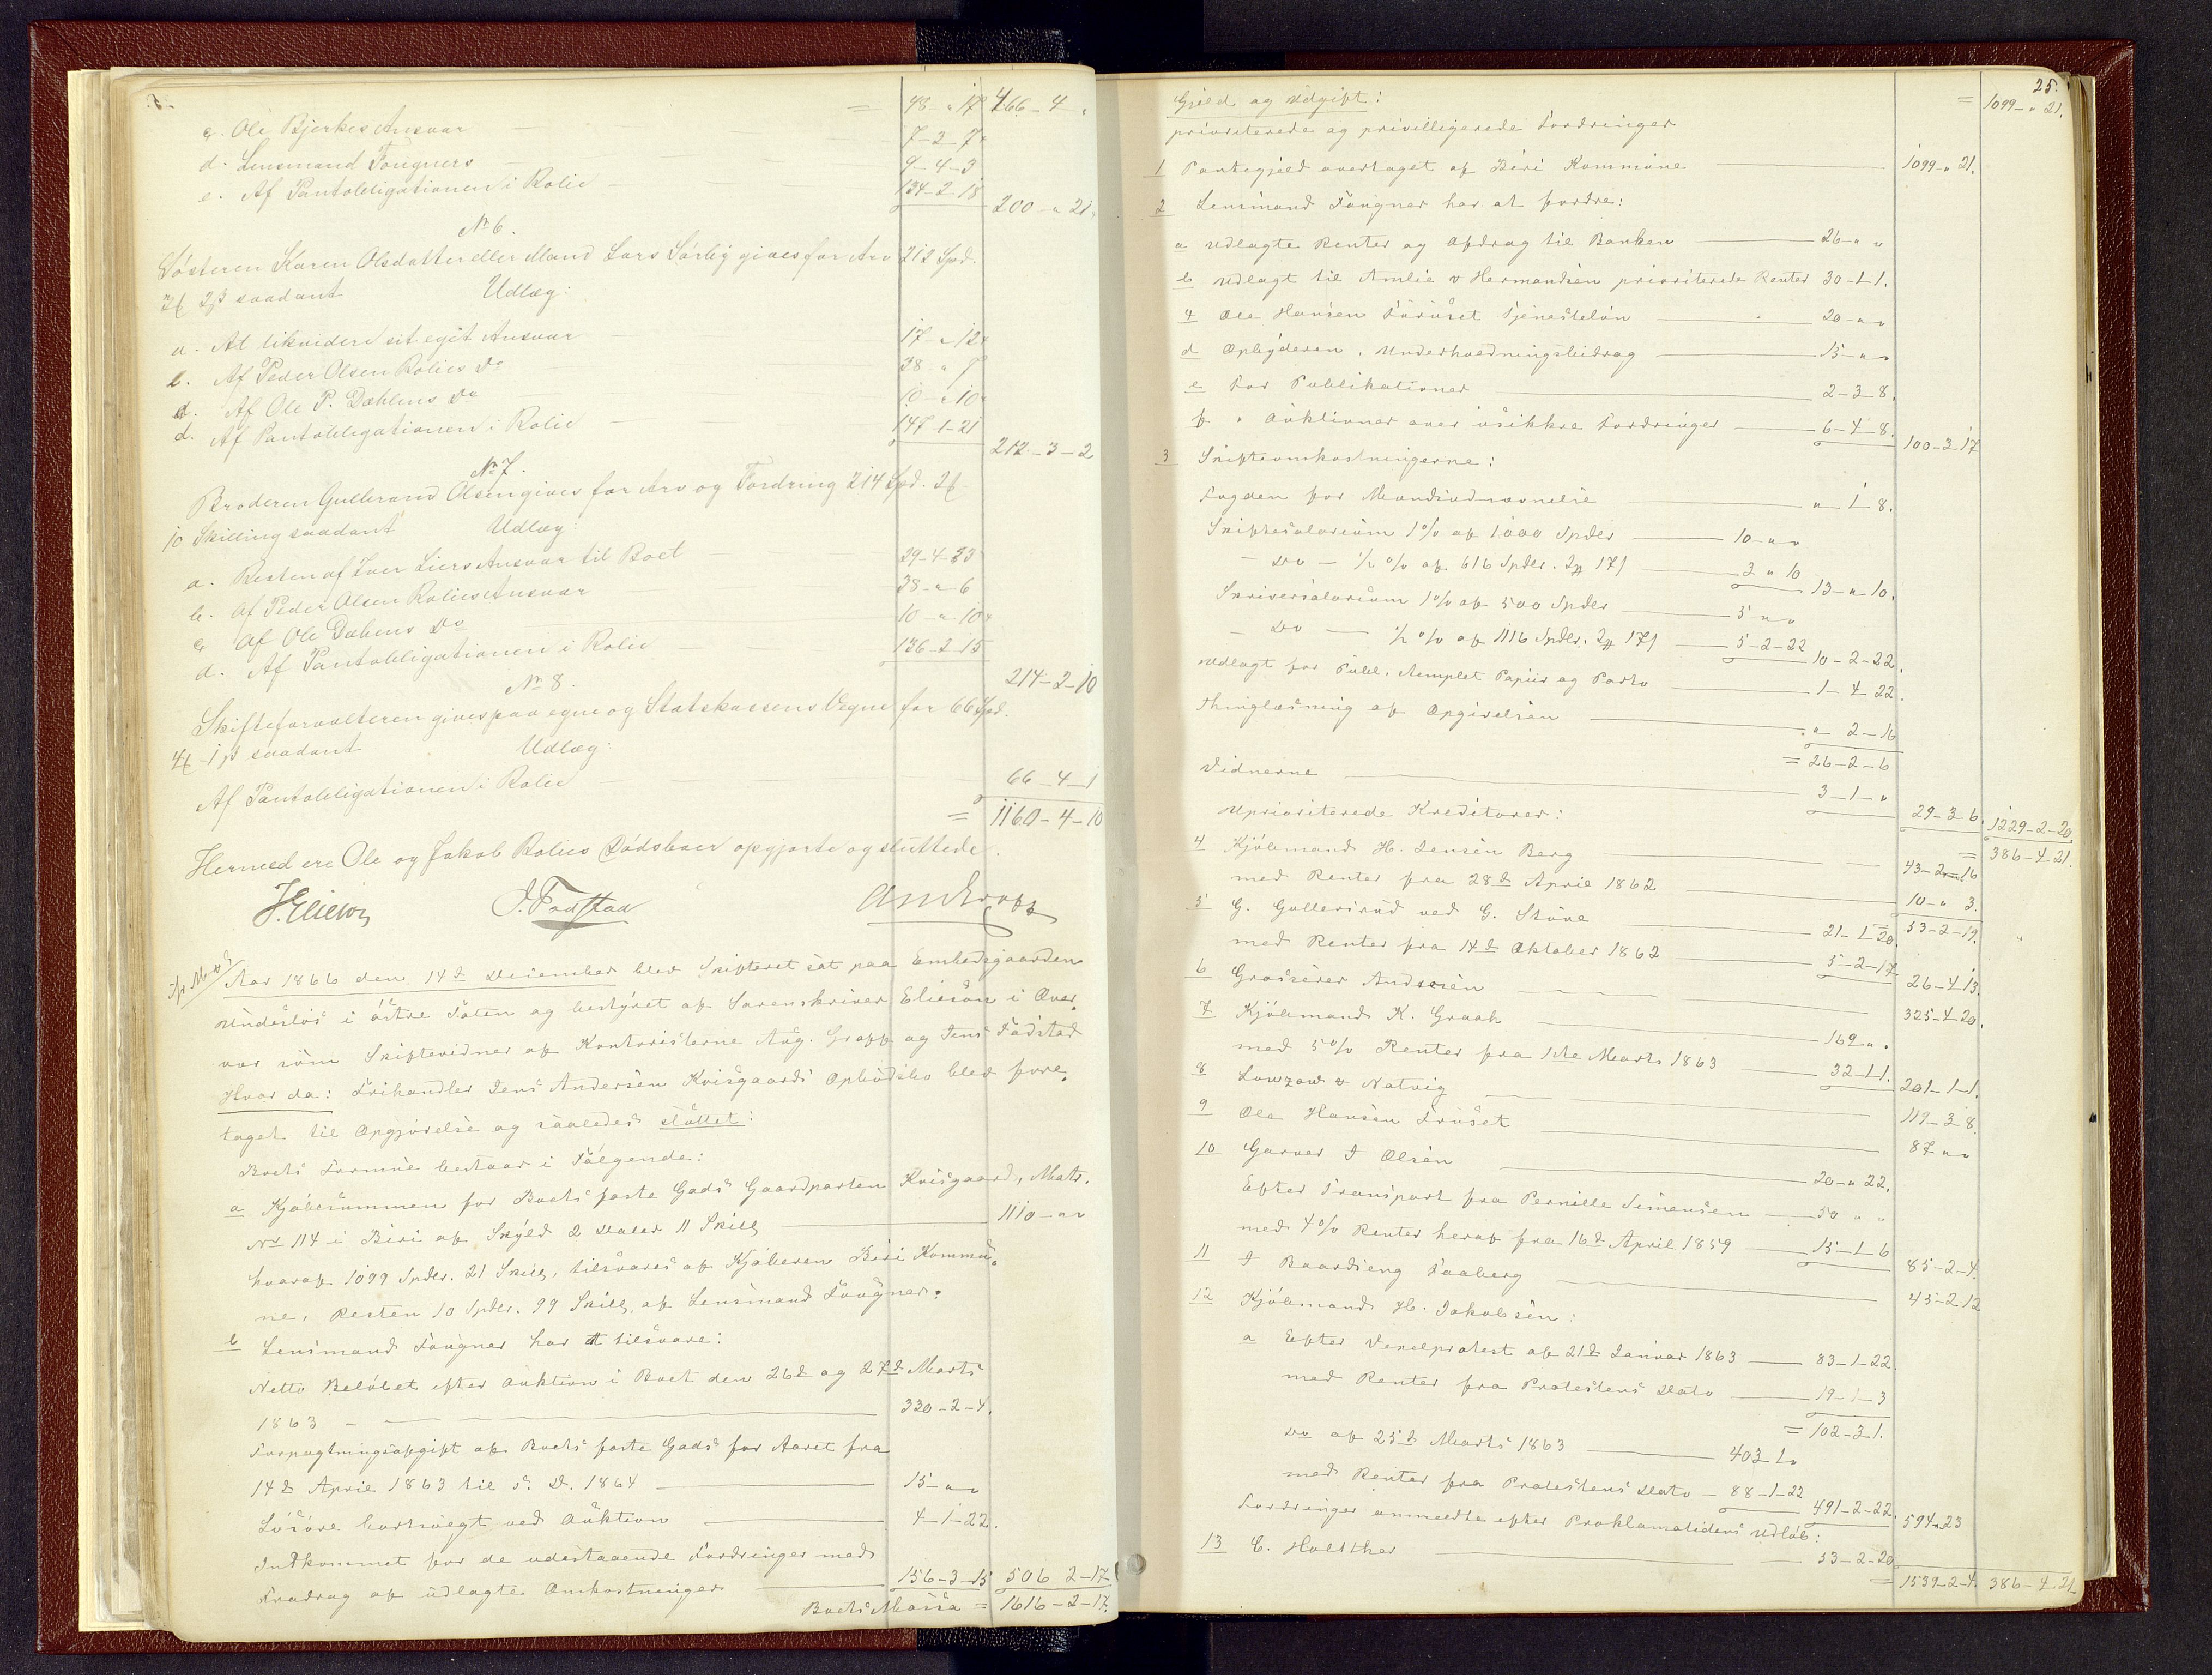 = 48 - " 17 466 - 4 "
c. Ole Bjerkes Ansvar — 7 - 2 - 7
d. Lensmand Fougners — 9 - 4 - 3
e. Af Pantobligationen i Rolie — 134 - 2 - 18 200 - " 21
No 6.
Søsteren Karen Olsdatter eller Mand Lars Sørlig gives for Arv 212 Spd.
3 ƒ 2 β saadant Udlæg:
a. At likvidere sit eget Ansvar — 17 - " 12
b. Af Peder Olsen Rolies Do — 38 " 9
c. Af Ole P. Dæhlens Do — 10 - " 10
d. Af Pantobligationen i Rolie — 147 - 1 - 21 212 - 3 - 2
No 7.
Broderen Gulbrand Olsen gives for Arv og Fordring 214 Spd. 2 ƒ
10 Skilling saadant Udlæg:
a. Resten af Iver Liers Ansvar til Boet — 29 - 4 - 23
b. Af Peder Olsen Rolies Ansvar — 38 - " - 6
c. Af Ole Dæhlens Do — 10 - " 10
d. Af Pantobligationen i Rolie — 136 - 2 15 214 - 2 - 10
No 8.
Skifteforvalteren gives paa egne og Statskassens Vegne for 66 Spd.
4 ƒ 1 β saadant Udlæg:
Af Pantobligationen i Rolie — 66 - 4 - 1
= 1160 - 4 - 10
Hermed ere Ole og Jakob Rolies Dødsboer opgjorte og sluttede.
J. Elieson
Aar 1866 den 14d December blev Skifteret sat paa Embedsgaarden
i østre Toten og bestyret af Sorenskriver Elieson i Over,
vær som Skiftevidner af Kontoristerne Aug. Gropp og Jens Fodstad
Hvor da: Frihandler Jens Andersen Kvisgaards Opbudsbo blev fore,
taget til Opgjørelse og saaledes sluttet:
Boets Formue bestaar i Følgende:
a Kjøbesummen for Boets faste Gods Gaardparten Kvisgaard, Matr.
Nr 114 i Biri af Skyld 2 Daler 11 Skill — 1110 - " "
hvoraf 1099 Spdlr. 21 Skill, tilsvares af Kjøberen Biri Kommu,
ne, Resten 10 Spdlr. 99 Skill, af Lensmand Fougner.
b Lensmand Fougner har at tilsvare:
Netto Beløbet efter Auktion i Boet den 26d og 27d Marts
1863 — 330 - 2 - 4.
Forpagtningsafgift af Boets faste Gods for Aaret fra
14d April 1863 til s. D. 1864 — 15 - " "
Løsøre bortsolgt ved Auktion — 4 - 1 - 22.
Indkommet for de udestaaende Fordringer med
Fradrag af udlagte Omkostninger — 156 - 3 - 15 506 2 - 17
Boets Massa = 1616 - 2 - 17.
25.
Gjæld og Udgift: = 1099 - " 21.
prioriterede og privilligerede Fordringer
1 Pantegjæld overtaget af Biri Kommune — 1099 - " 21.
2 Lensmand Fougner har at fordre:
a Udlagte Renter og Afdrag til Banken — 26 - " "
b Udlagt til Amlie v Hermandsen prioriterede Renter 30 - 1 - 1.
c Ole Hansen Furuset Tjenesteløn — 20 - " "
d Opbyderen, Underholdningsbidrag — 15 - " "
e For Publikationer — 2 - 3 - 8.
f " Auktioner over usikkre Fordringer — 6 - 4 - 8. 100 - 3 17
3 Skifteomkostningerne:
Fogden for Mandsudnævnelse — " 1 8.
Skiftesalarium 1% af 1000 Spdlr — 10 - " "
— Do — ½% af 616 Spdlr. 2 ƒ 17 β — 3 " 10 13 - " 10.
Skriversalarium 1% af 500 Spdlr — 5 " "
— Do — ½% af 1116 Spdlr. 2 ƒ 17 β — 5 - 2 - 22 10 - 2 - 22.
Udlagt for Publ. stemplet Papir og Porto — 1 - 4 22
Thinglæsning af Opgivelsen — " 2 - 16
= 26 - 2 - 6
Vidnerne — 3 - 1 - " 29 - 3 6. 1229 - 2 - 20
Uprioriterede Kreditorer: = 386 - 4 21.
4 Kjøbmand H. Jensen Berg — 43 - 2 - 16
med Renter fra 28d April 1862 — 10 - " 3.
53 - 2 - 19.
5 G. Gullersrud ved G. Skøve — 21 - 1 20.
med Renter fra 14d Oktober 1862 — 5 - 2 - 17 26 - 4 13.
6 Grosserer Andersen — 325 - 4 20.
7 Kjøbmand K. Graah — 169 " "
med 5% Renter fra 1ste Marts 1863 — 32 - 1 1. 201 - 1 - 1.
8 Lowzow v Natvig — 119 - 3 8.
9 Ole Hansen Fruset — 87 " "
10 Garver T Olsen — 20 - " 22.
Efter Transport fra Pernille Simensen — 50 " "
med 4% Renter heraf fra 16d April 1859 — 15 - 1 6 85 - 2 - 4.
11 T Baardseng Faaberg — 45 - 2 12
12 Kjøbmand H. Jakobsen:
a Efter Vexelprotest af 21d Januar 1863 — 83 - 1 - 22.
med Renter fra Protestens Dato — 19 - 1 - 3
= 102 - 3 - 1.
Do af 25d Marts 1863 — 403 1 "
med Renter fra Protestens Dato — 88 - 1 - 22 491 - 2 - 22. 594 " 23
Fordringer anmeldte efter Proklamatidens Udløb:
13 C. Holtther — 53 - 2 - 20
= 1539 - 2 - 4. 386 - 4 21